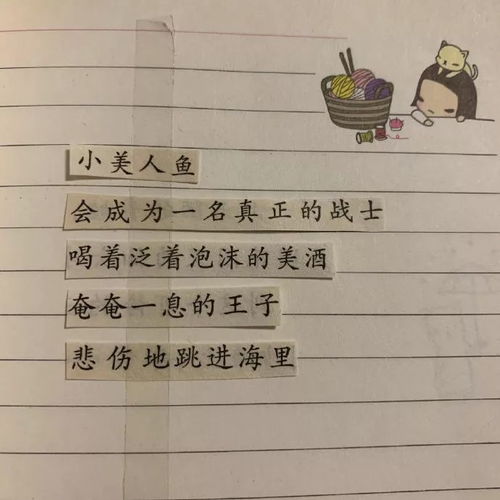 小美人鱼
会成为一名真正的战士
喝着泛着泡沫的美酒
奄奄一息的王子
悲伤地跳进海里